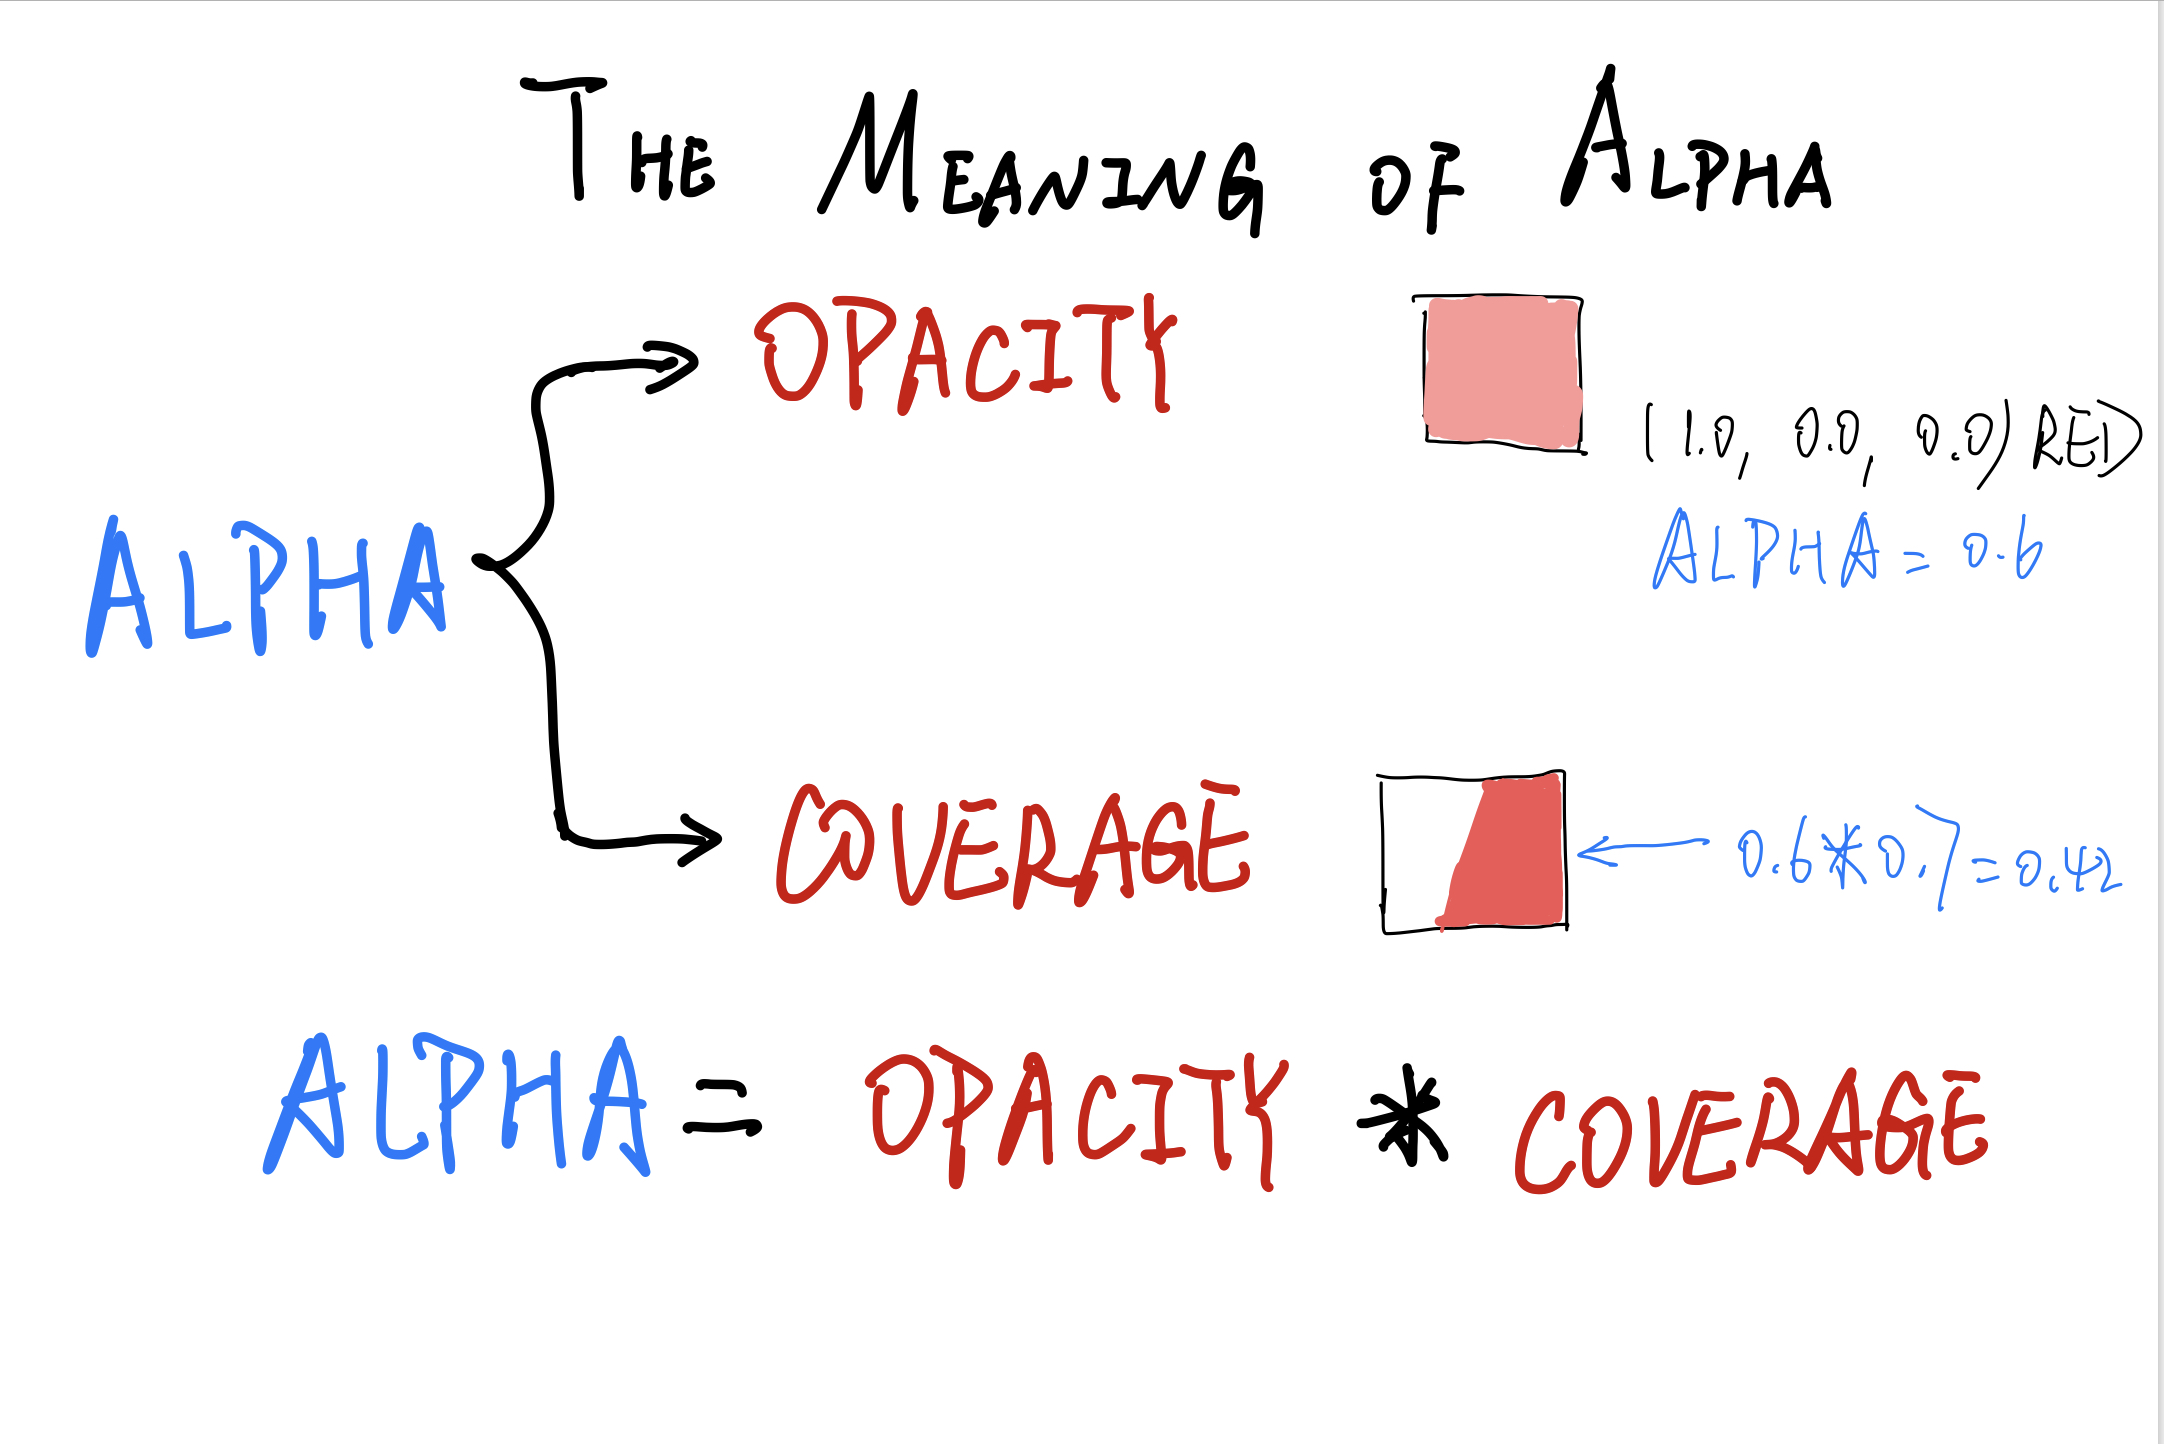 THE MEANING OF ALPHA
OPACITY
(1.0, 0.0, 0.0) RED
ALPHA = 0.6
ALPHA
COVERAGE
0.6*0.7=0.42
ALPHA = OPACITY * COVERAGE